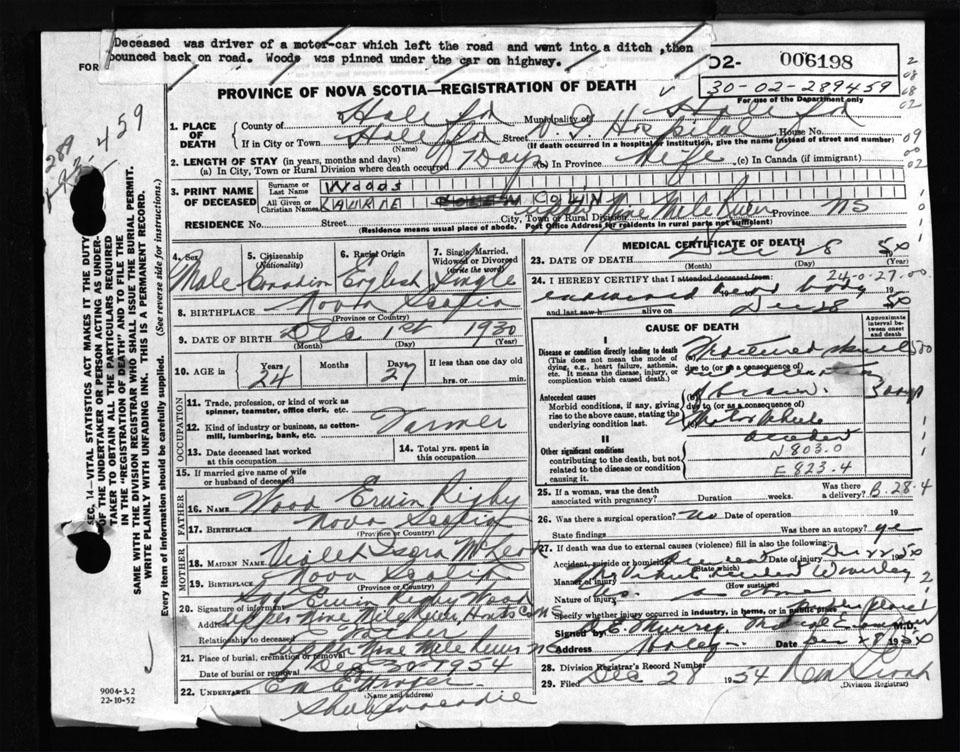 Deceased was driver of a motor-car which left the road and went into a ditch ,then
bounced back on road. Woods was pinned under the car on highway.
FOR
02- 006198
30-02-289459
For use of the Department only
PROVINCE OF NOVA SCOTIA—REGISTRATION OF DEATH
1. PLACE OF DEATH
County of Halifax Municipality of Halifax
If in City or Town Halifax Street V. G Hospital House No.
(Name) (If death occurred in a hospital or institution, give the name instead of street and number)
2. LENGTH OF STAY (in years, months and days)
(a) In City, Town or Rural Division where death occurred 7 Days (b) In Province Life (c) In Canada (if immigrant)
3. PRINT NAME OF DECEASED
Surname or Last Name Woods
All Given or Christian Names LAURIE COLIN
RESIDENCE No. Street City, Town or Rural Division Nine Mile River Province NS
(Residence means usual place of abode. Post Office Address for residents in rural parts not sufficient)
4. Sex Male
5. Citizenship (Nationality) Canadian
6. Racial Origin English
7. Single, Married, Widowed or Divorced (write the word) Single
8. BIRTHPLACE Nova Scotia
(Province or Country)
9. DATE OF BIRTH Dec 1st 1930
(Month) (Day) (Year)
10. AGE in Years 24 Months Days 27 If less than one day old
hrs. or min.
OCCUPATION
11. Trade, profession, or kind of work as spinner, teamster, office clerk, etc.
12. Kind of industry or business, as cotton-mill, lumbering, bank, etc. Farmer
13. Date deceased last worked at this occupation
14. Total yrs. spent in this occupation
15. If married give name of wife or husband of deceased
FATHER
16. NAME Wood Erwin Rigby
17. BIRTHPLACE Nova Scotia
(Province or Country)
MOTHER
18. MAIDEN NAME Violet
19. BIRTHPLACE Nova Scotia
(Province or Country)
20. Signature of informant Sgd Erwin Rigby Wood
Address Upper Nine Mile River Hants Co NS
Relationship to deceased Father
21. Place of burial, cremation or removal Upper Nine Mile River NS
Date of burial or removal Dec 30 1954
22. UNDERTAKER
(Name and address)
Shubenacadie
9004-3.2
22-10-52
MEDICAL CERTIFICATE OF DEATH
23. DATE OF DEATH Dec 28 54
(Month) (Day) (Year)
24. I HEREBY CERTIFY that I attended deceased from
24-0-27-00
examined dead body 19
and last saw h alive on Dec 28 54
CAUSE OF DEATH
Approximate interval between onset and death
I
Disease or condition directly leading to death
(This does not mean the mode of dying, e.g., heart failure, asthenia, etc. It means the disease, injury, or complication which caused death.)
Fractured skull
due to (or as a consequence of)
Antecedent causes
Morbid conditions, if any, giving rise to the above cause, stating the underlying condition last.
of brain.
due to (or as a consequence of)
Motor Vehicle
accident
II
Other significant conditions
contributing to the death, but not related to the disease or condition causing it.
N 803.0
E 823.4
25. If a woman, was the death associated with pregnancy? Duration weeks. Was there a delivery? B.28.4
26. Was there a surgical operation? No Date of operation 19
State findings Was there an autopsy? yes
27. If death was due to external causes (violence) fill in also the following:
Accident, suicide or homicide? Accident Date of injury Dec 22 1954
(State which)
Manner of injury Waverley
(How sustained)
Nature of injury
Specify whether injury occurred in industry, in home, or in public place
Signed by Murray Medical Examiner M.D.
Address Date 28 1954
28. Division Registrar's Record Number
29. Filed Dec 28 1954
(Division Registrar)
SEC. 14—VITAL STATISTICS ACT MAKES IT THE DUTY
OF THE UNDERTAKER OR PERSON ACTING AS UNDER-
TAKER TO OBTAIN ALL THE PARTICULARS REQUIRED
IN THE "REGISTRATION OF DEATH" AND TO FILE THE
SAME WITH THE DIVISION REGISTRAR WHO SHALL ISSUE THE BURIAL PERMIT.
WRITE PLAINLY WITH UNFADING INK. THIS IS A PERMANENT RECORD.
Every item of information should be carefully supplied. (See reverse side for instructions.)